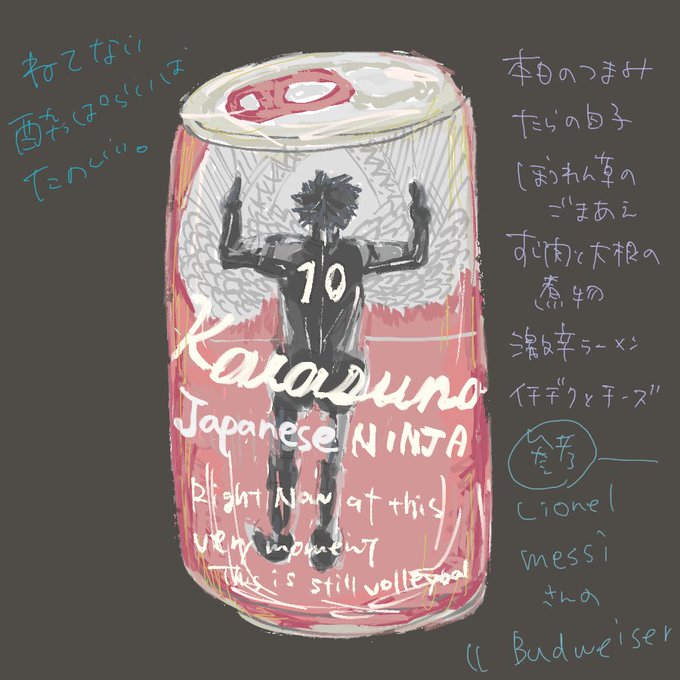 ねてない
酔っぱらいは
たのしい。
10
Karasuno
Japanese NINJA
Right Now at this
very moment
This is still volleyball
本日のつまみ
たらの白子
ほうれん草の
ごまあえ
すじ肉と大根の
煮物
激辛ラーメン
イチヂクとチーズ
Lionel
messi
さんの
Budweiser